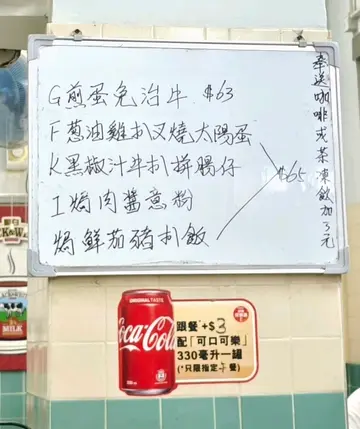 G煎蛋免治牛 $63
F葱油雞扒叉燒太陽蛋
K黑椒汁牛扒拼腸仔
I焗肉醬意粉
焗鮮茄豬扒飯
$65
奉送咖啡或茶凍飲加3元
ORIGINAL TASTE
Coca-Cola
跟餐+$3
配「可口可樂」
330毫升一罐
(*只限指定午餐)
MILK